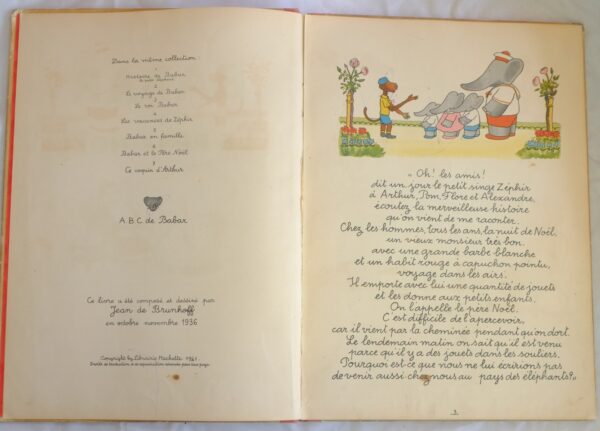 Dans la même collection :
1
Histoire de Babar
le petit éléphant
2
Le voyage de Babar
3
Le roi Babar
4
Les vacances de Zéphir
5
Babar en famille
6
Babar et le Père Noël
7
Ce coquin d'Arthur
A.B.C de Babar
Ce livre a été composé et dessiné par
Jean de Brunhoff
en octobre novembre 1936
Copyright by Librairie Hachette 1941
Droits de traduction et de reproduction réservés pour tous pays.
« Oh! les amis!
dit un jour le petit singe Zéphir
à Arthur, Pom, Flore et Alexandre,
écoutez la merveilleuse histoire
qu'on vient de me raconter.
Chez les hommes, tous les ans, la nuit de Noël,
un vieux monsieur très bon.
avec une grande barbe blanche
et un habit rouge à capuchon pointu,
voyage dans les airs.
Il emporte avec lui une quantité de jouets
et les donne aux petits enfants.
On l'appelle le père Noël.
C'est difficile de l'apercevoir,
car il vient par la cheminée pendant qu'on dort.
Le lendemain matin on sait qu'il est venu
parce qu'il y a des jouets dans les souliers.
Pourquoi est-ce que nous ne lui écririons pas
de venir aussi chez nous au pays des éléphants?»
3